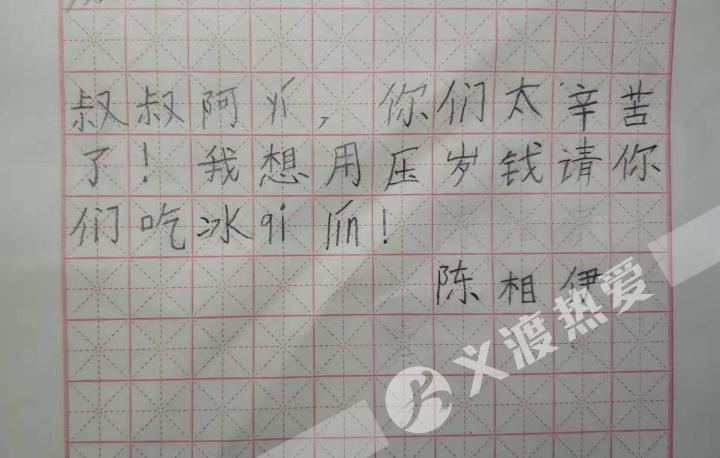 叔叔阿yí，你们太辛苦
了！我想用压岁钱请你
们吃冰qi lín！
陈相伊
义渡热爱